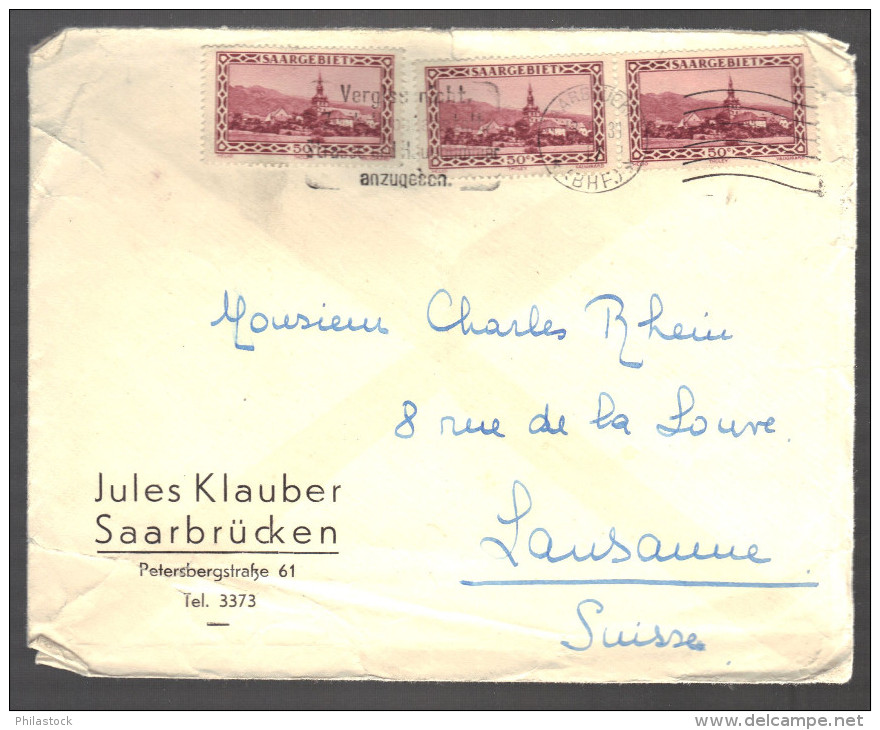 SAARGEBIET
SAARGEBIET
SAARGEBIET
50c
50c
50c
Vergiss nicht,
anzugeben.
(BHF)
Monsieur Charles Rhein
8 rue de la Louve
Lausanne
Suisse
Jules Klauber
Saarbrücken
Petersbergstraße 61
Tel. 3373
Philastock
www.delcampe.net